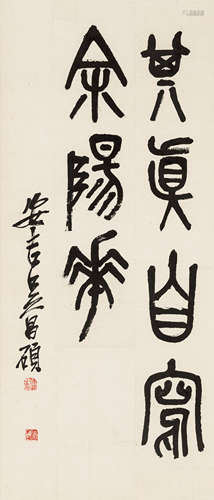 其真自寫
余陽
安吉吳昌碩